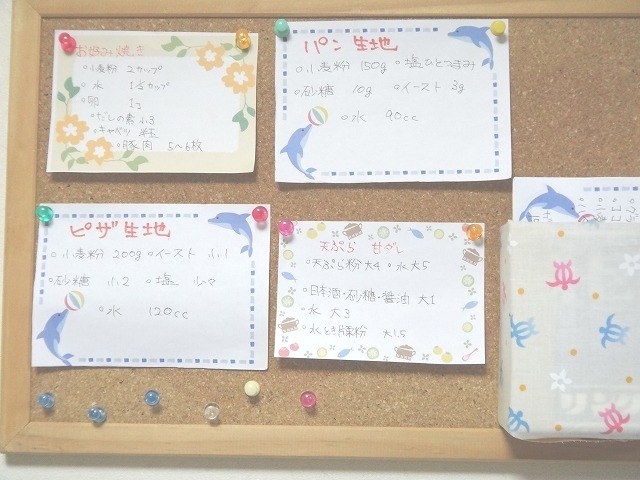 お好み焼き
○小麦粉 2カップ
○水 1.5カップ
○卵 1コ
○だしの素 小3
○キャベツ 半玉
○豚肉 5〜6枚
パン生地
○小麦粉 150g ○塩ひとつまみ
○砂糖 10g ○イースト 3g
○水 90cc
ピザ生地
○小麦粉 200g ○イースト 小1
○砂糖 小2 ○塩 小々
○水 120cc
天ぷら 甘ダレ
○天ぷら粉 大4 ○水 大5
○日本酒・砂糖・醤油 大1
○水 大3
○水とき片栗粉 大1.5
リング